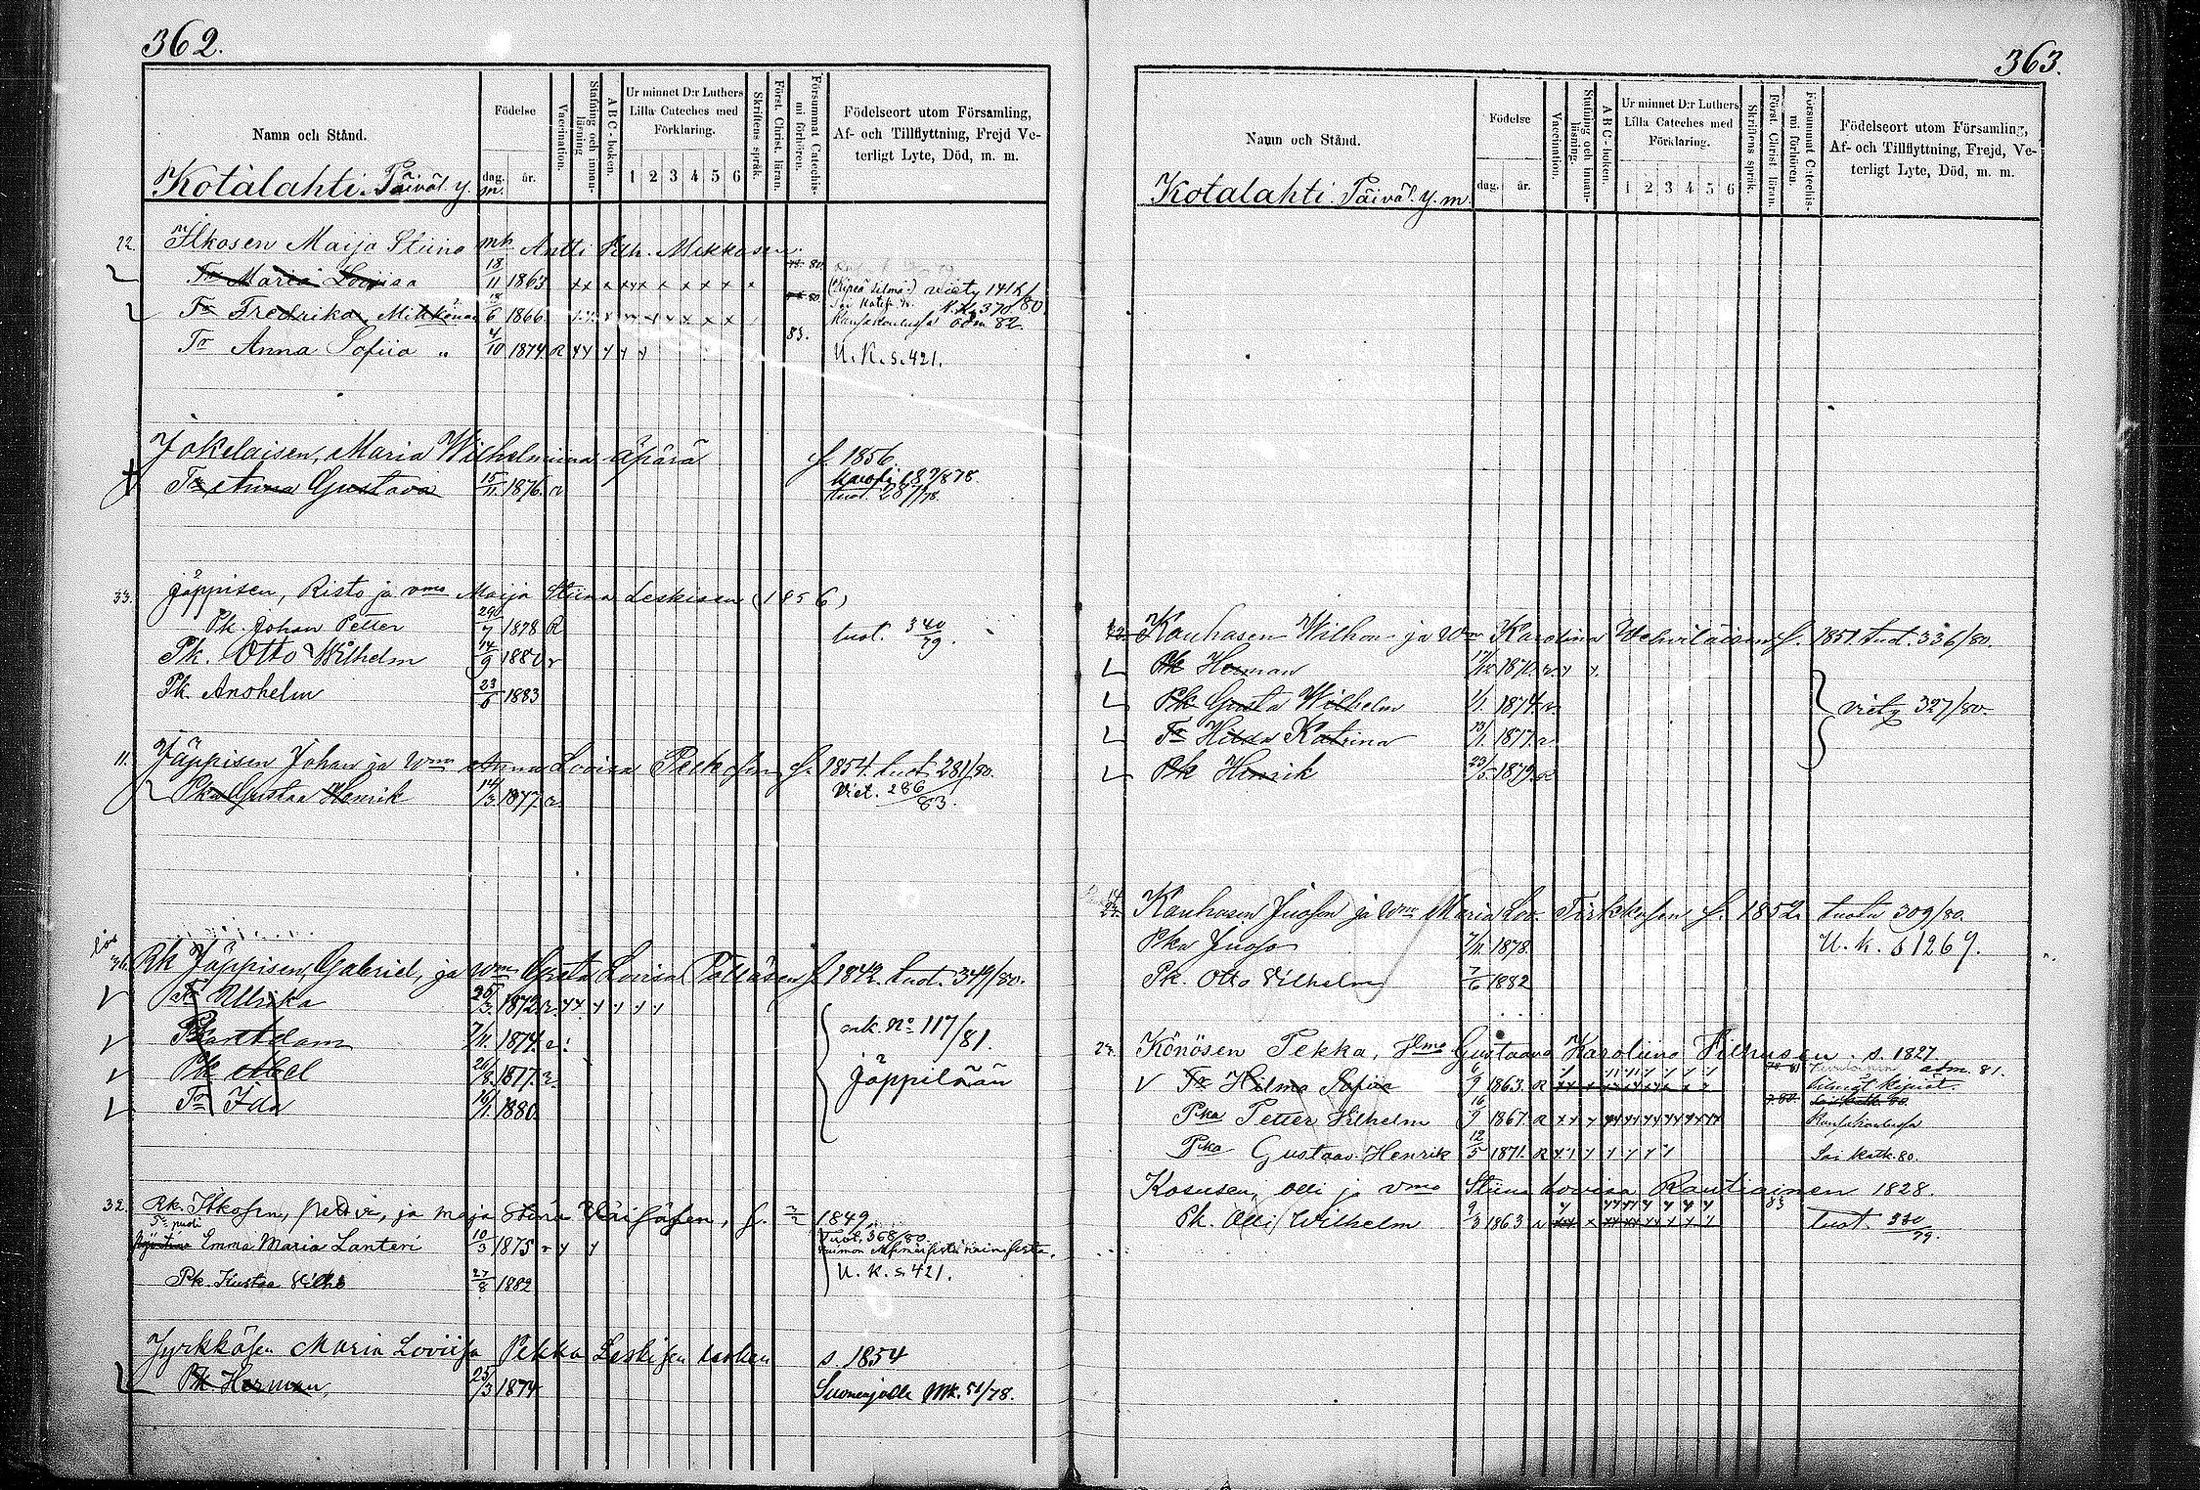 362.
Namn och Stånd.
Födelse
dag.
år.
Vaccination.
Stafning och innan-
läsning
ABC-boken.
Ur minnet D:r Luthers
Lilla Cateches med
Förklaring.
1 2 3 4 5 6
Skriftens språk.
Först. Christ. läran.
Försummat Catechis-
mi förhören.
Födelseort utom Församling,
Af- och Tillflyttning, Frejd Ve-
terligt Lyte, Död, m. m.
Kotalahti. Päiväl. y. m.
22. Ilkosen Maija Stiina mh Antti Mikkosen
Tr Maria Loviisa 18/11 1863 80. viety 141
Tr Fredrika Mikkonen 18/6 1866 370/80
Kansakoulussa adm 82.
Tr Anna Sofiia " 4/10 1874 R 83. U. K. s. 421.
Jokelaisen, Maria Wilhelmiina äpärä f. 1856
Tr Anna Gustava 15/11 1876. tuot. 287/78.
33. Jäppisen, Risto ja vmo Maija Stiina Leskisen (1856)
Pk. Johan Petter 29/7 1878 R tuot. 340/79.
Pk. Otto Wilhelm 14/9 1880 r
Pk. Anshelm 23/6 1883
11. Jäppisen Johan ja Wmo Anna Lovisa Pekosen, f. 1854. tuot. 281/80.
Pka Gustaa Henrik 14/3 1877. Viet. 286/83.
36. Rk Jäppisen, Gabriel, ja Wmo Gusta Lovisa Pölläsen f. 1842. tuot. 349/80.
Ullrika 25/3 1872
Adam 7/11. 1874. muk. No 117/81.
Pk Abel 26/8. 1877. Jäppilään
Tr Ida 19/1. 1880.
32. Rk. Itkosen, ja Maja Stina Väisäsen, f. 2/2 1849
5ta puoli Tuot. 368/80.
Emma Maria Lanteri 10/3 1875
Pk. Kustaa Vilho 27/8 1882 U. K. s. 421.
Jyrkkäsen Maria Loviisa Pekka Leskisen lesken s. 1854
Pk. Herman, 25/3 1874 Suonenjoelle Mk. 51/78.
363.
Namn och Stånd.
Födelse
dag.
år.
Vaccination.
Stafning och innan-
läsning.
ABC-boken.
Ur minnet D:r Luthers
Lilla Cateches med
Förklaring.
1 2 3 4 5 6
Skriftens språk.
Först. Christ läran.
Försummat Catechis-
mi förhören.
Födelseort utom Församling,
Af- och Tillflyttning, Frejd, Ve-
terligt Lyte, Död, m. m.
Kotalahti. Päiväl. y. m.
Kauhasen Wilhon ja Wmo Karolina Vehviläisen f. 1851 tuot. 336/80.
Pk Herman 1870.
Pk Gusta Wilhelm 1/1. 1874. viety 327/80.
Tr Hilda Katrina 1877.
Pk Henrik 23/5. 1879.
Kauhasen Juoson ja Wmo Maria Lov. Pirkkosen f. 1852. tuotu 309/80.
Pka Juoso 7/11. 1878. U. k. s 1269.
Pk. Otto Vilhelm 7/6 1882
Könösen Pekka, Hmo Gustaava Karoliina Pithusen. s. 1827.
Tr Hilma Sofiia 6/9 1863. R adm. 81.
silmät kipiät.
Pka Petter Vilhelm 16/9 1867. R Kansakoulussa
Pka Gustaav. Henrik 12/5 1871. R Sai katk. 80.
Kosusen, Olli ja vmo Stiina Lovisa Rautiainen 1828.
Pk. Olli Wilhelm 9/3 1863 83 tuot. 330/79.